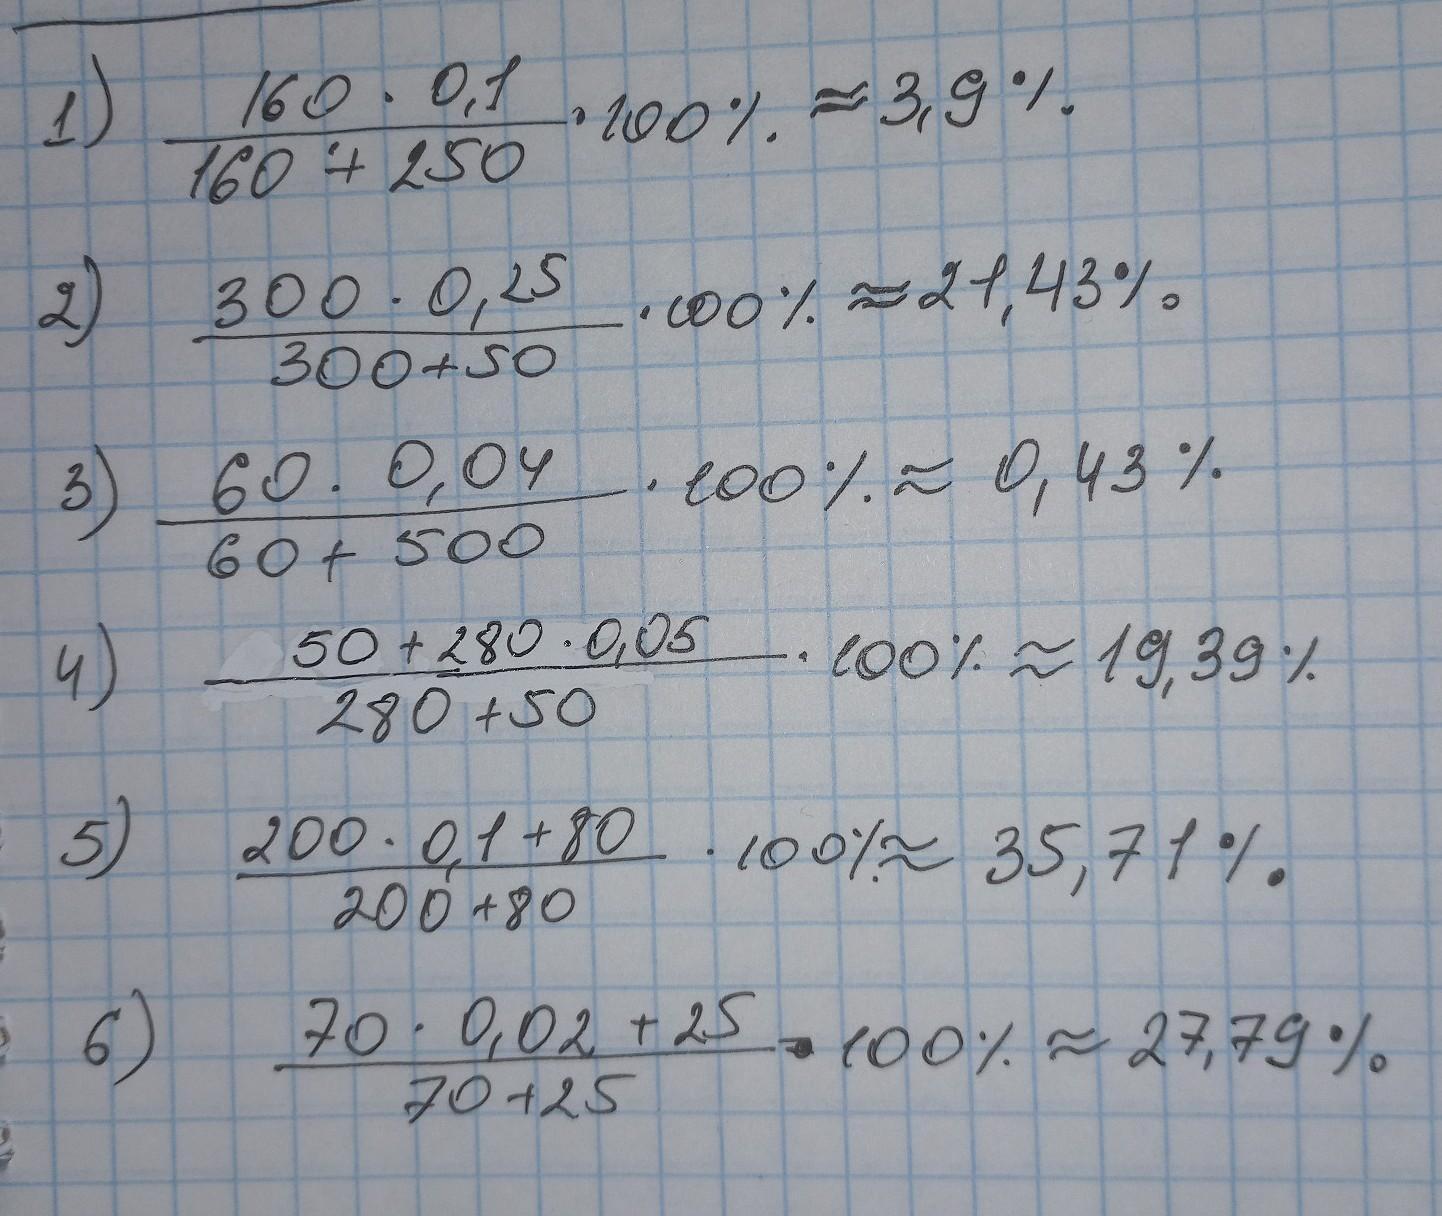 1) 160 · 0,1 / 160 + 250 · 100% ≈ 3,9%.
2) 300 · 0,25 / 300+50 · 100% ≈ 21,43%.
3) 60 · 0,04 / 60 + 500 · 100% ≈ 0,43%
4) 50+280 · 0,05 / 280+50 · 100% ≈ 19,39%
5) 200 · 0,1+80 / 200+80 · 100% ≈ 35,71%.
6) 70 · 0,02 + 25 / 70+25 · 100% ≈ 27,79%.